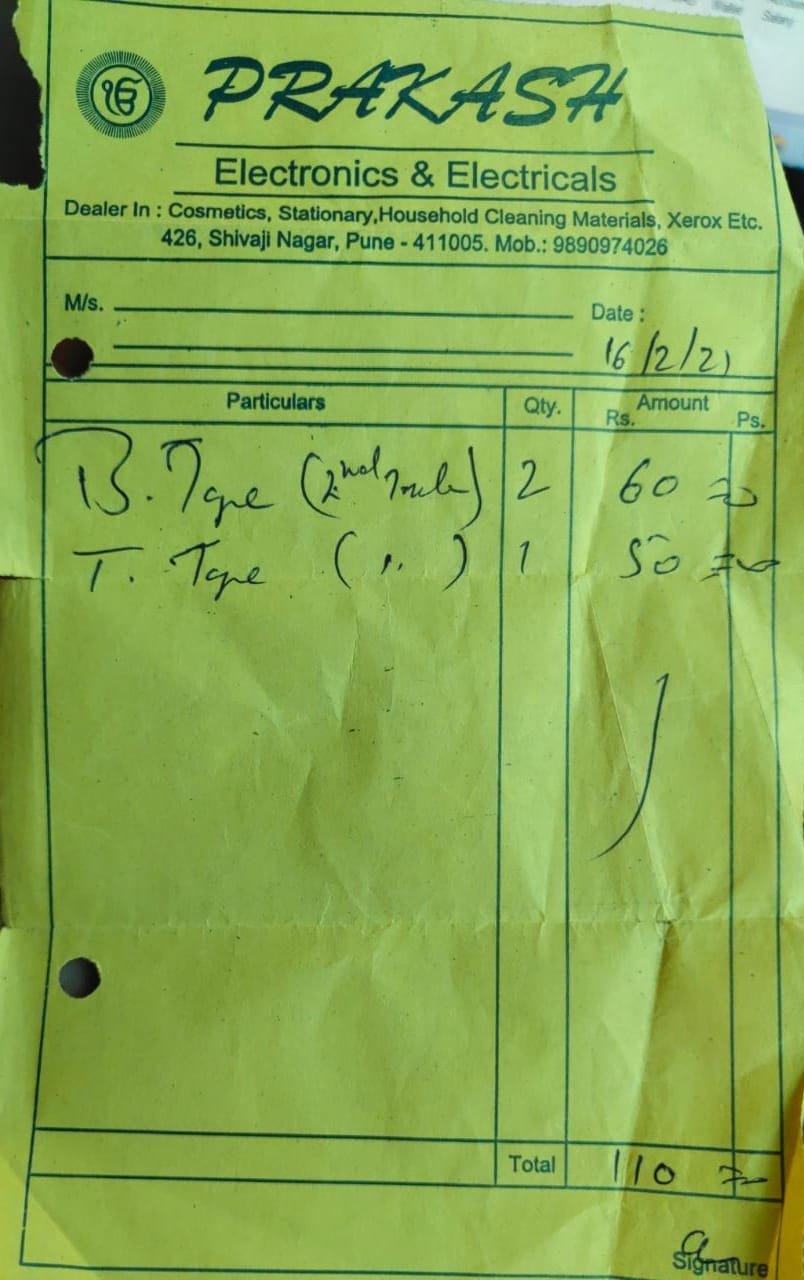 ੴ PRAKASH
Electronics & Electricals
Dealer In : Cosmetics, Stationary,Household Cleaning Materials, Xerox Etc.
426, Shivaji Nagar, Pune - 411005. Mob.: 9890974026
M/s. Date :
16/2/21
Particulars Qty. Amount
Rs. Ps.
B. Tape (2nd 2 60 =00
T. Tape ( ,, ) 1 50 =00
Total 110 =00
Signature